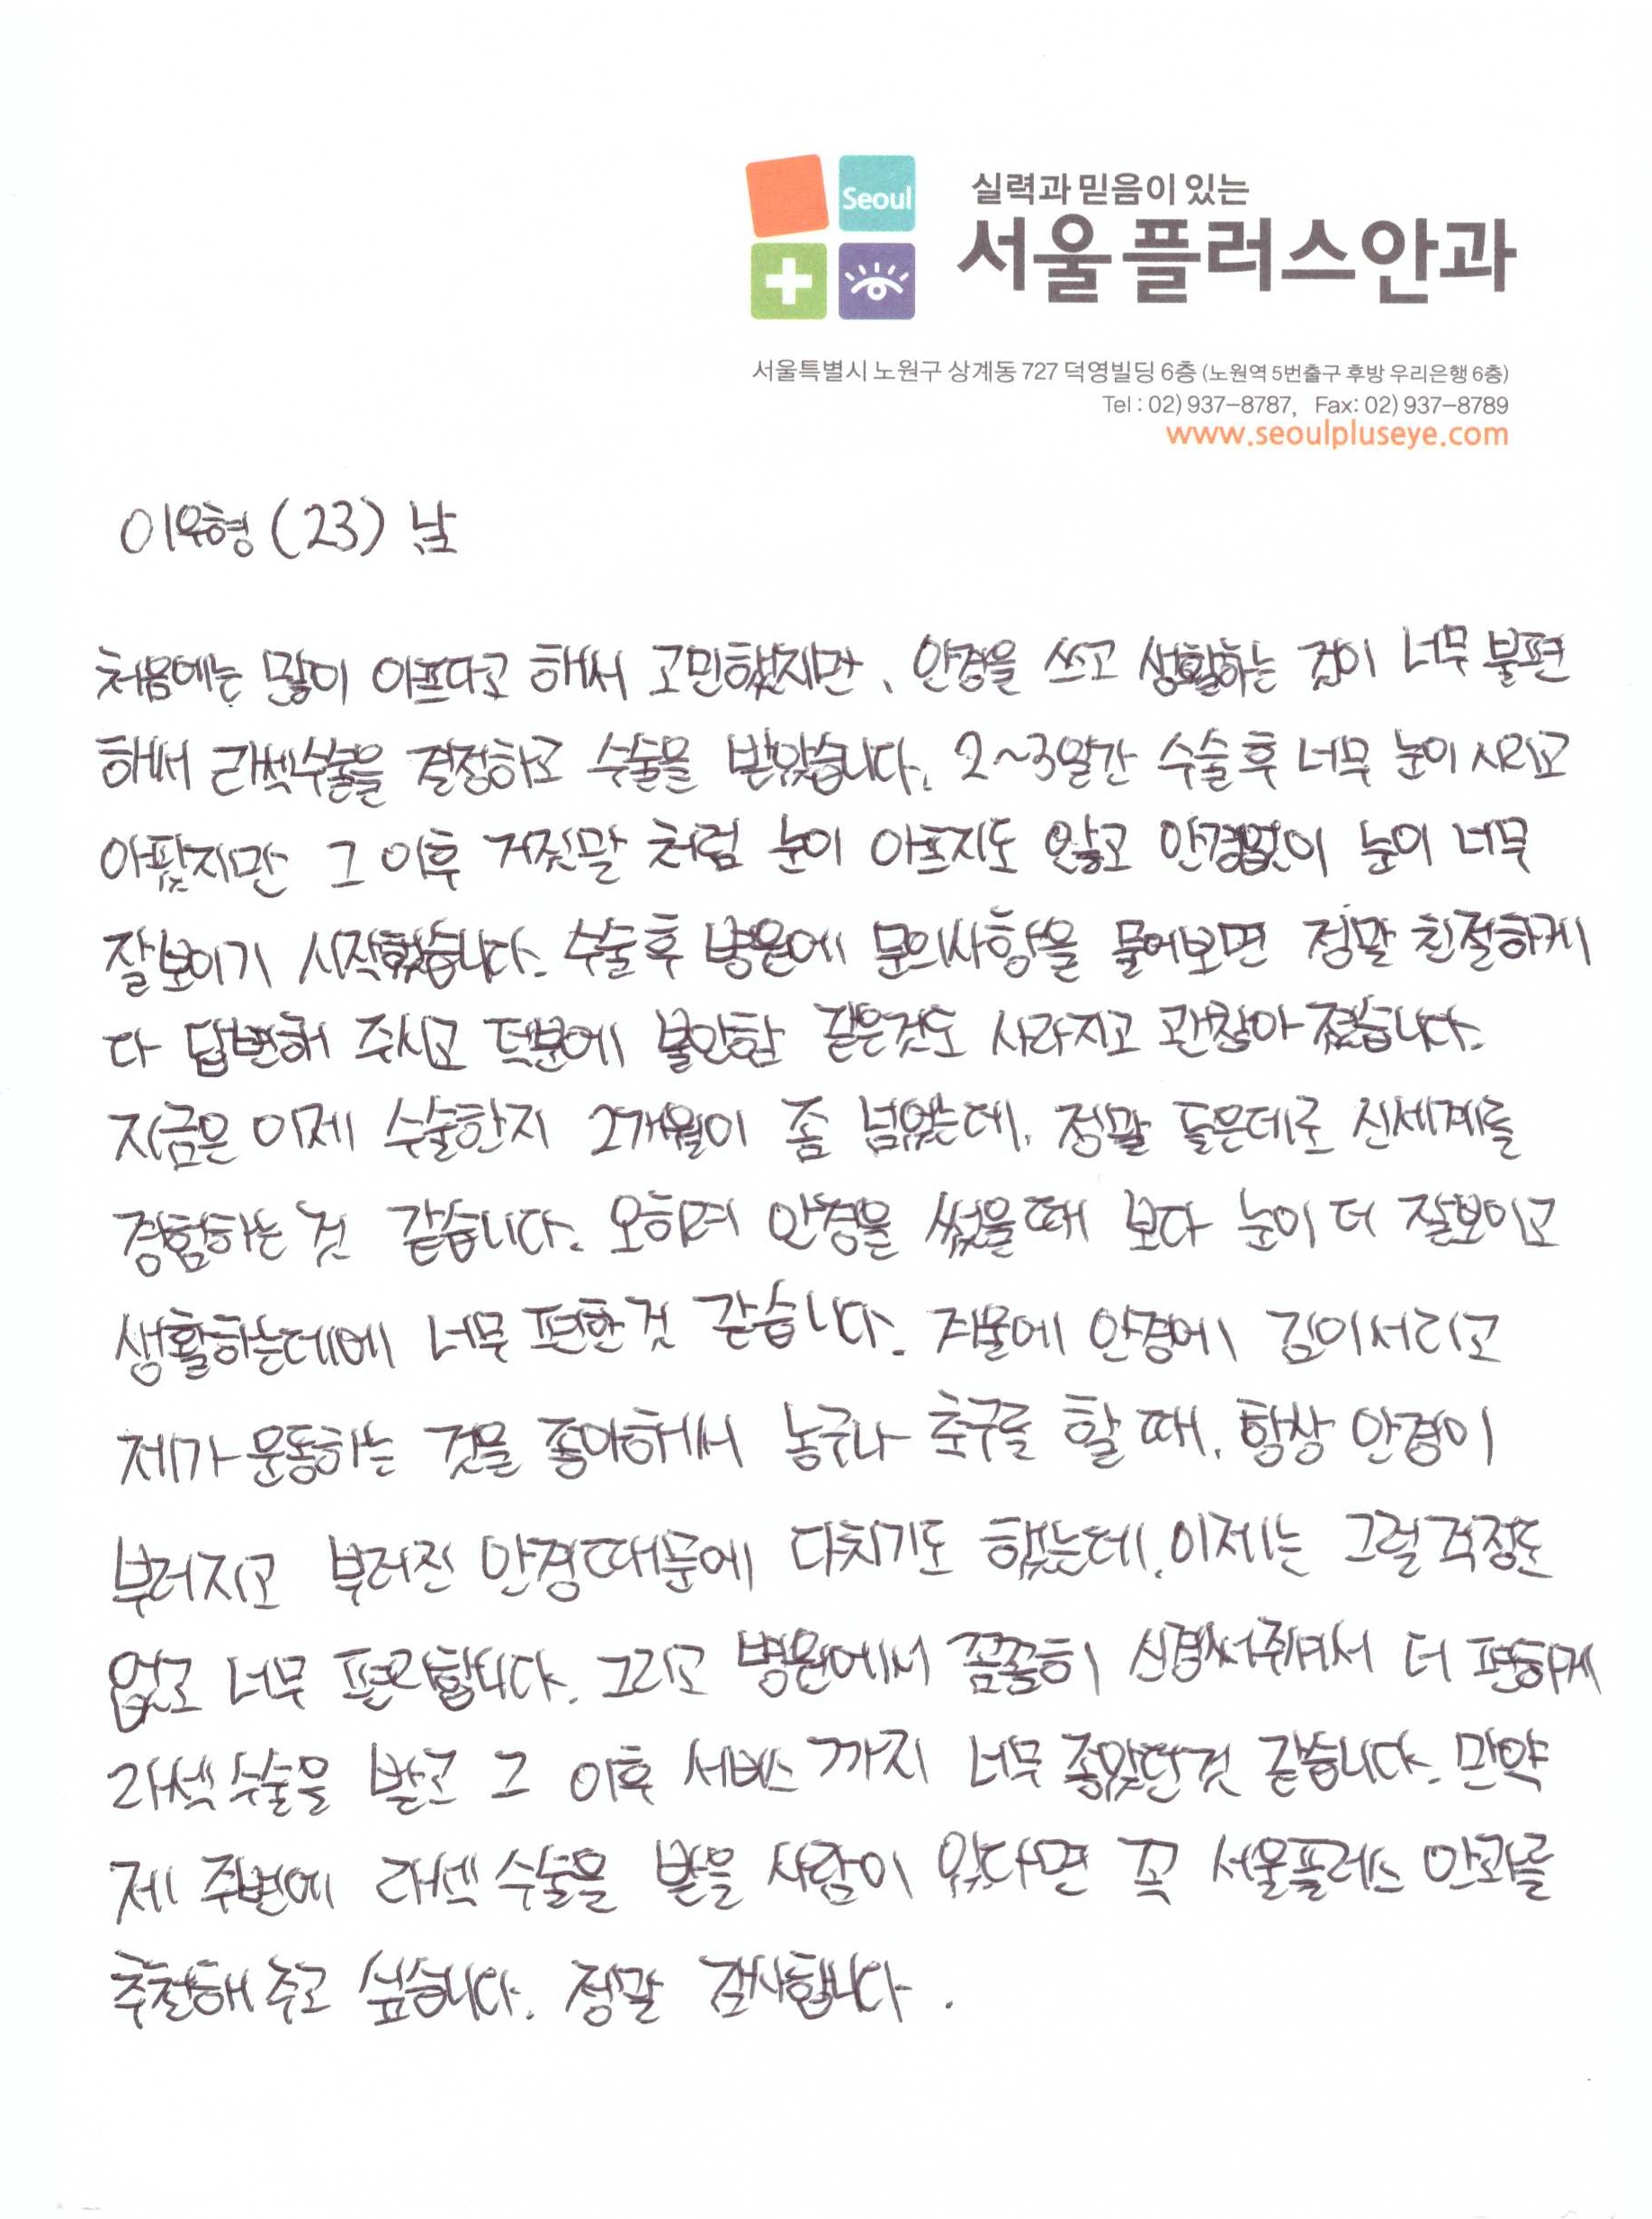 Seoul
실력과 믿음이 있는
서울플러스안과
서울특별시 노원구 상계동 727 덕영빌딩 6층 (노원역 5번출구 후방 우리은행 6층)
Tel : 02) 937-8787, Fax: 02) 937-8789
www.seoulpluseye.com
이우형 (23) 남
처음에는 많이 아프다고 해서 고민했지만, 안경을 쓰고 생활하는 것이 너무 불편
해서 라섹수술을 결정하고 수술을 받았습니다. 2~3일간 수술후 너무 눈이 시리고
아팠지만 그 이후 거짓말 처럼 눈이 아프지도 않고 안경없이 눈이 너무
잘보이기 시작했습니다. 수술후 병원에 문의사항을 물어보면 정말 친절하게
다 답변해 주시고 덕분에 불안함 같은것도 사라지고 괜찮아 졌습니다.
지금은 이제 수술한지 2개월이 좀 넘었는데, 정말 들은데로 신세계를
경험하는 것 같습니다. 오히려 안경을 썼을때 보다 눈이 더 잘보이고
생활하는데에 너무 편한것 같습니다. 겨울에 안경에 김이서리고
제가 운동하는 것을 좋아해서 농구나 축구를 할 때, 항상 안경이
부러지고 부러진 안경때문에 다치기도 했는데, 이제는 그럴걱정도
없고 너무 편리합니다. 그리고 병원에서 꼼꼼히 신경써주셔서 더 편하게
라섹수술을 받고 그 이후 서비스 까지 너무 좋았던것 같습니다. 만약
제 주변에 라섹 수술을 받을 사람이 있다면 꼭 서울플러스 안과를
추천해 주고 싶습니다. 정말 감사합니다.